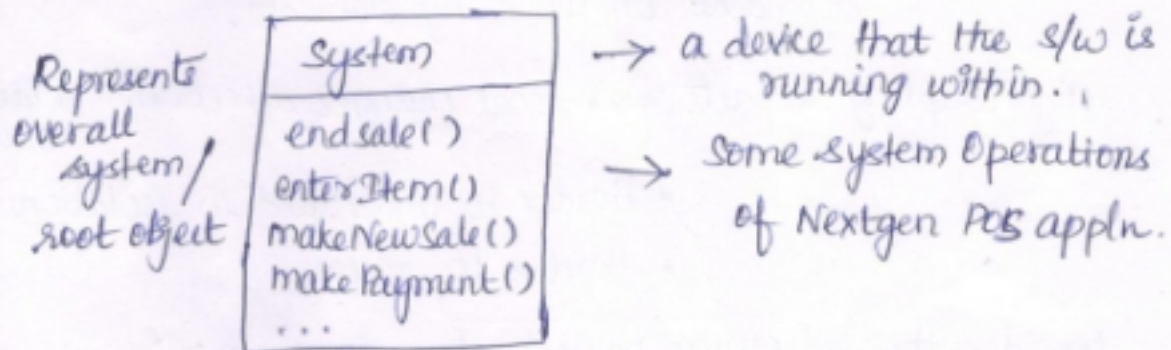 Represents
overall
system/
root object
System
endsale()
enterItem()
makeNewSale()
makePayment()
...
→ a device that the s/w is
running within.
→ Some system Operations
of Nextgen POS appln.